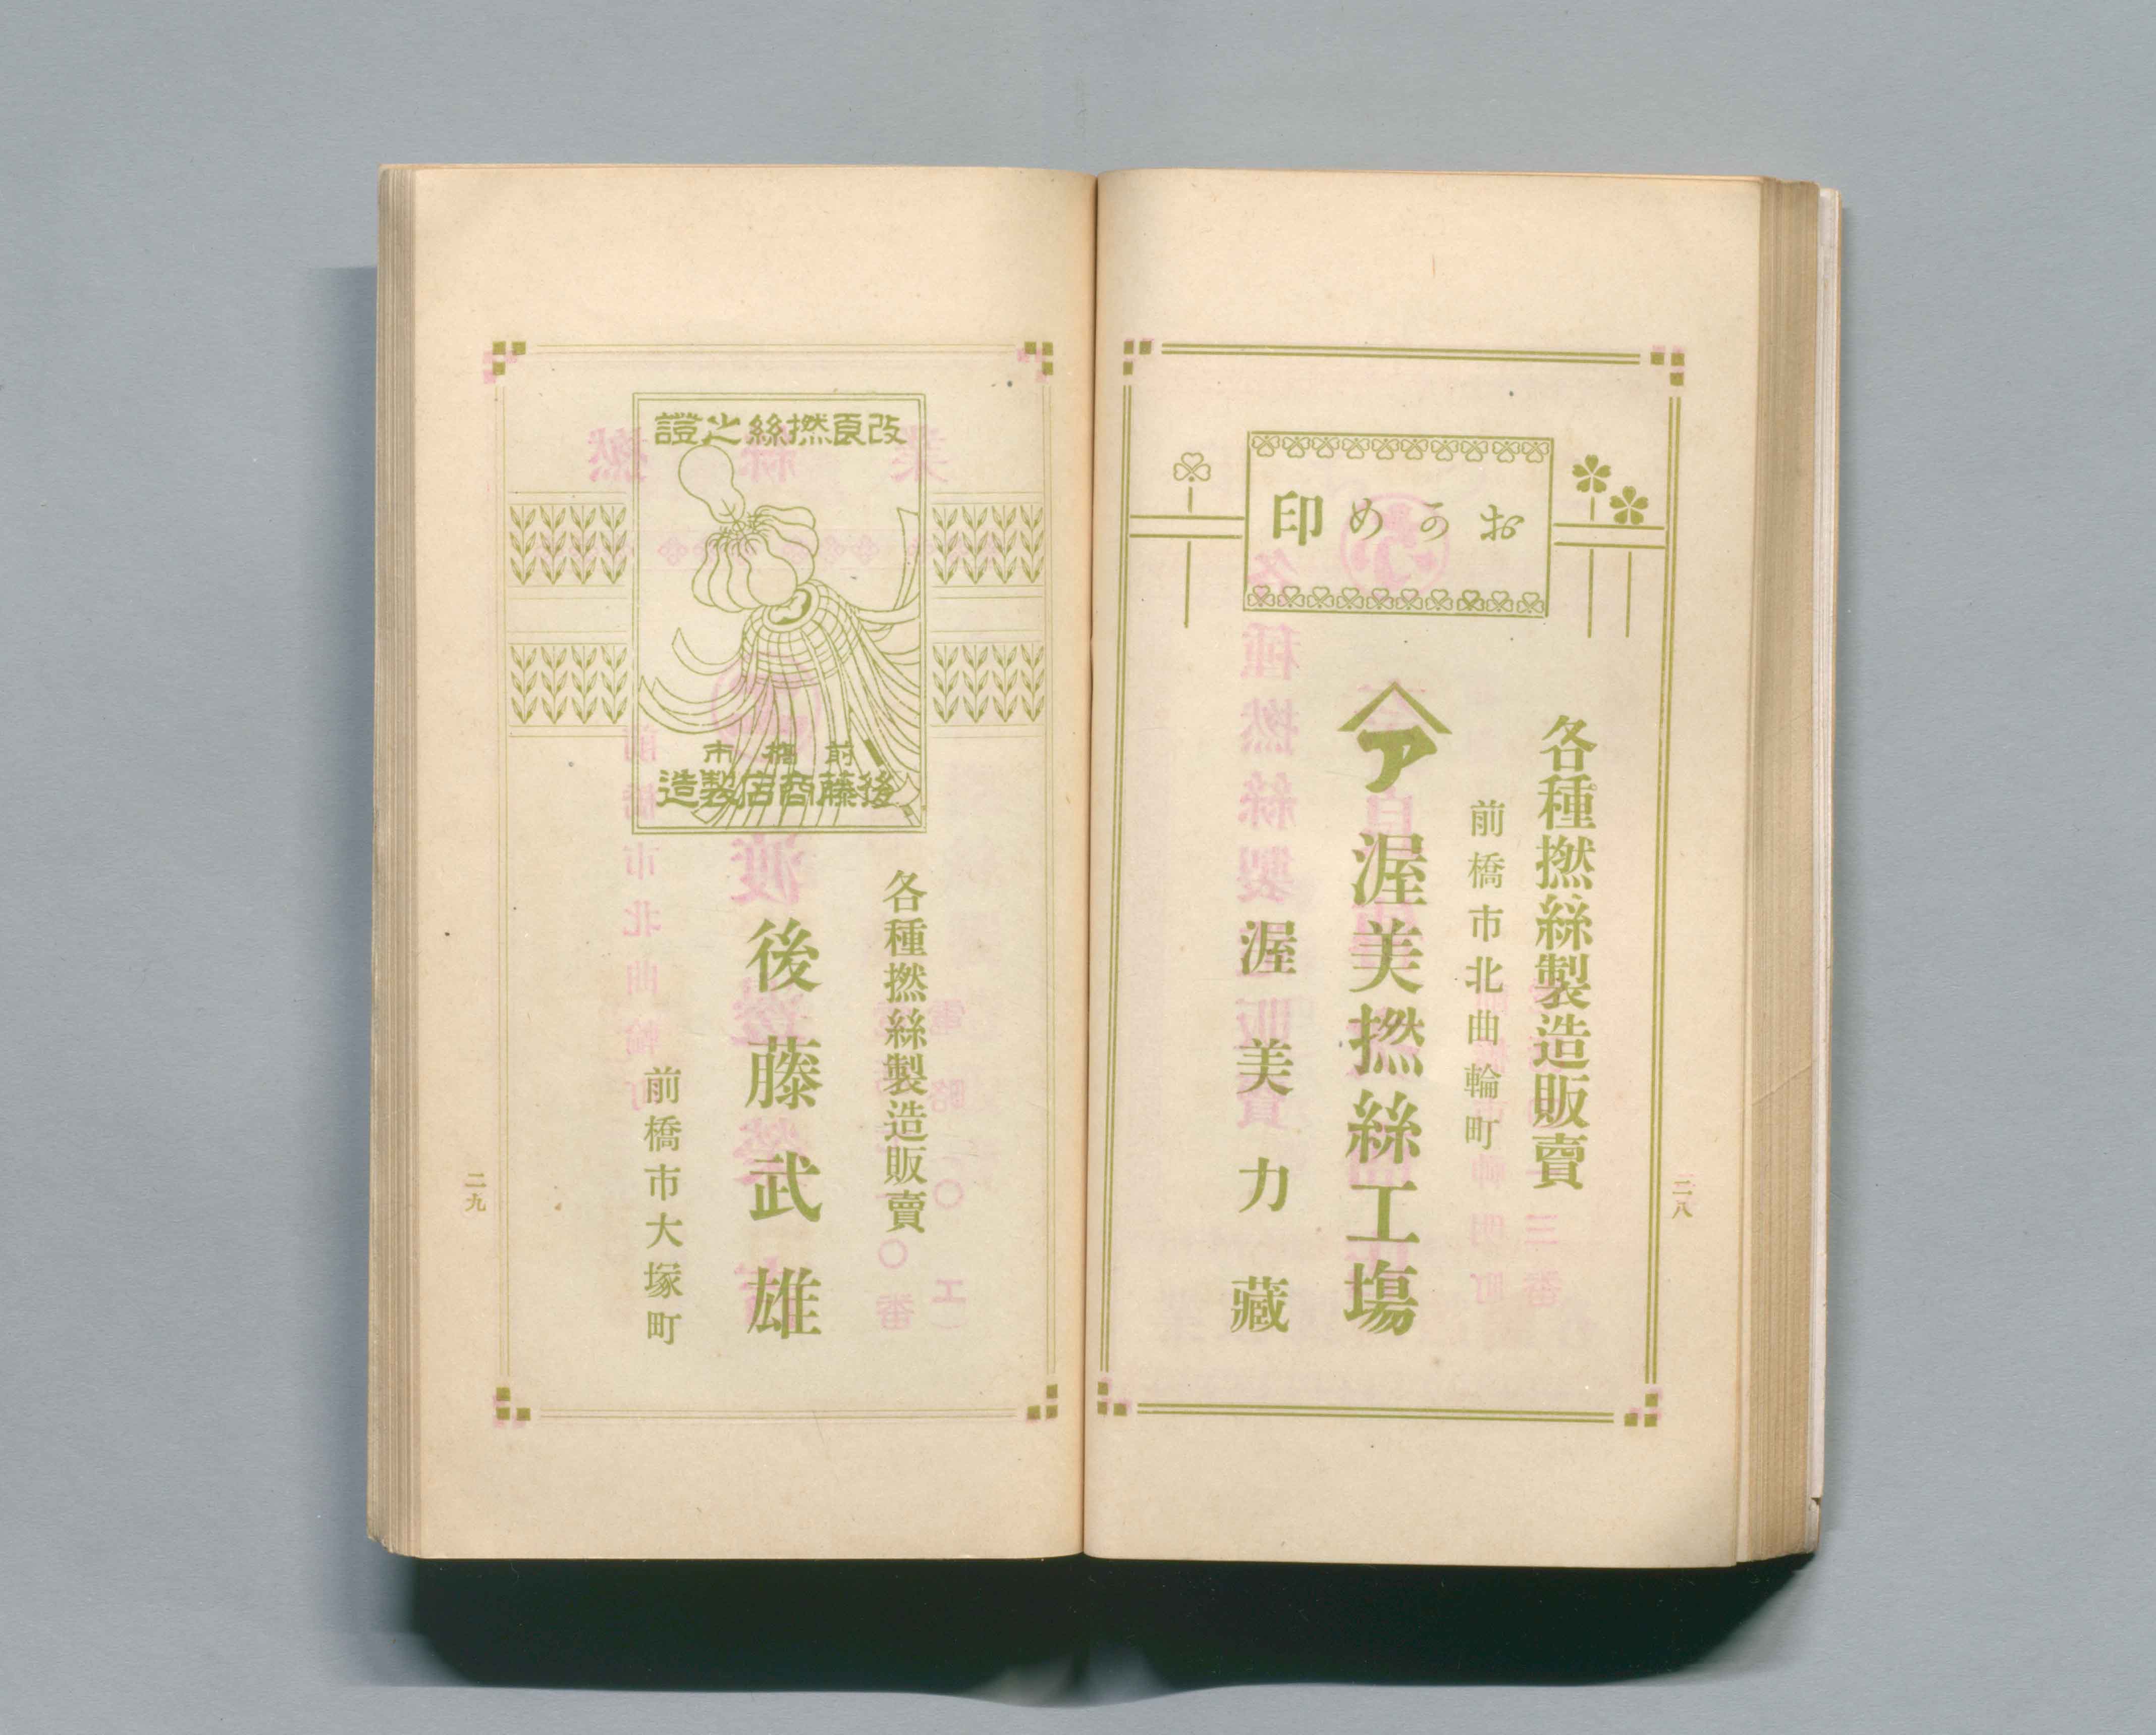 おかめ印
各種撚絲製造販賣
前橋市北曲輪町
ア
渥美撚絲工場
渥美力藏
二八
改良撚絲之證
前橋市
後藤商店製造
各種撚絲製造販賣
後藤武雄
前橋市大塚町
二九